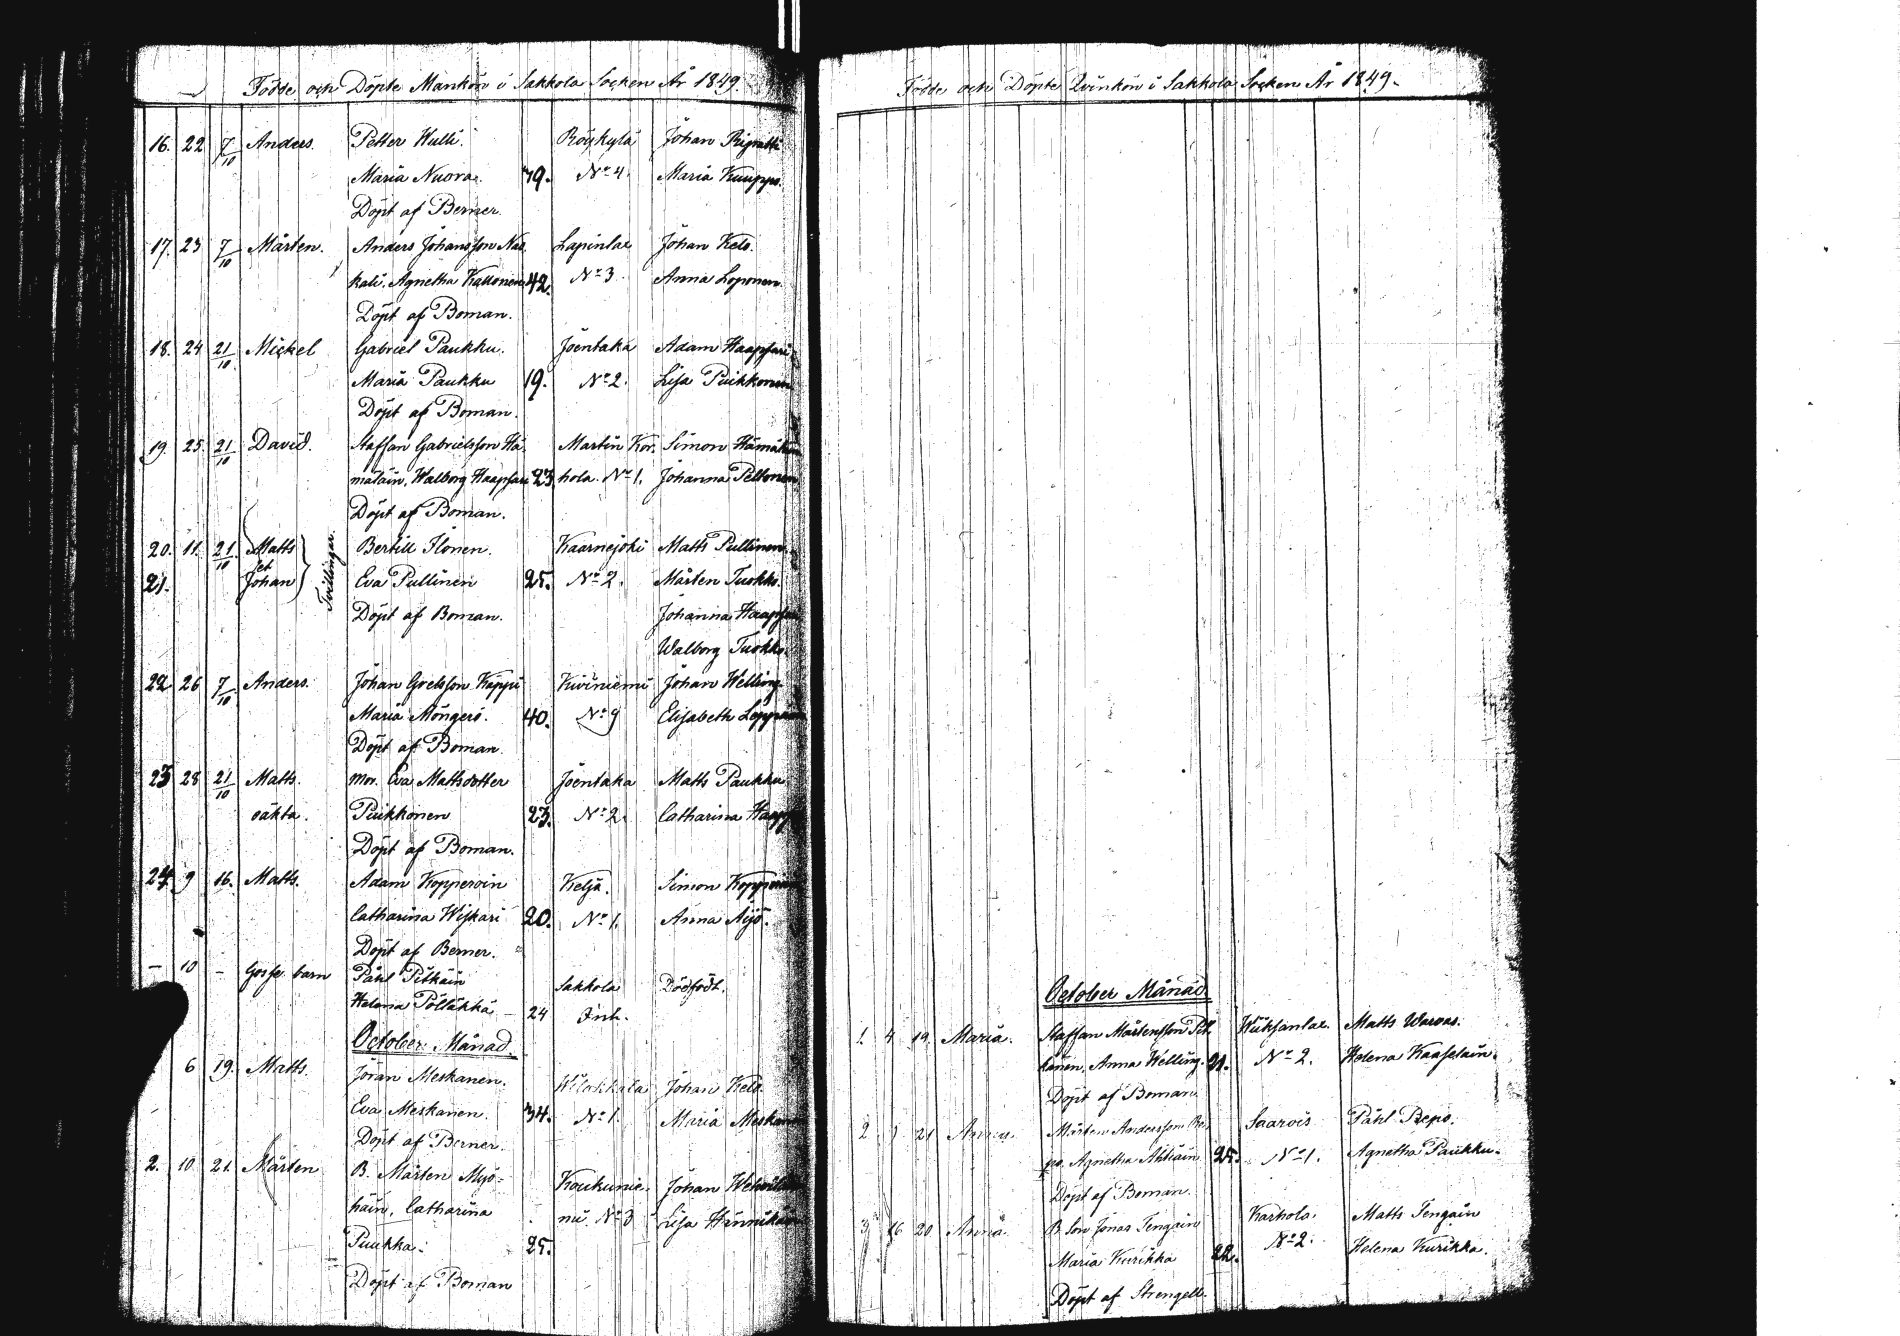 Födde och Döpte Mankön i Sakkola Socken År 1849.
16. 22 7/10 Anders. Petter Wulli. Röykylä Johan Rigatti
Maria Nuora. 39. No 4. Maria Kuuppo.
Döpt af Berner.
17. 23 7/10 Mårten. Anders Johansson Nas Lapinlax Johan Kelo.
kali, Agnetha Kallonen 42. No 3. Anna Loponen.
Döpt af Boman.
18. 24 21/10 Mickel Gabriel Paukku. Joentaka Adam Haapsari
Maria Paukku 19. No 2. Lisa Puikkonen
Döpt af Boman.
19. 25 21/10 David. Staffan Gabrielsson Hä Martin Kor. Simon Hämäläin
mäläin, Walborg Haapsari 23 hola. No 1. Johanna Peltonen
Döpt af Boman.
20. 11. 21/10 Matts Bertill Ilonen. Kaarnejoki Matts Pullinen.
et
21. Johan Tvillingar. Eva Pullinen 25. No 2. Mårten Tuokko.
Döpt af Boman. Johanna
Walborg Tuokko.
22 26 7/10 Anders. Johan Grelsson Käppi Kiviniemi Johan Welling.
Maria Möngerö. 40. No 9 Elisabeth
Döpt af Boman.
23 28 21/10 Matts. Mor. Eva Mattsdotter Joentaka Matts Paukku
oäkta. Puikkonen 23. No 2. Catharina
Döpt af Boman.
24. 9 16. Matts. Adam Kopperoin Kelja. Simon
Catharina Wiskari 20. No 1. Anna Äijö.
Döpt af Berner.
— 10 — Gosse barn Påhl Pitkäin Sakkola Dödfödt.
Helena Pölläkkä 24 Inh.
October Månad
6 19. Matts. Jöran Meskanen. Wilakkala Johan Kelo.
Eva Meskanen. 34. No 1. Maria
Döpt af Berner.
2. 10. 21. Mårten B. Mårten Myö- Koukunie. Johan
häin, Catharina mi No 3 Lisa
Puukka. 25.
Döpt af Boman
Födde och Döpte Qvinkön i Sakkola Socken År 1849.
October Månad.
1. 4 19. Maria. Staffan Mårtensson Pit Wiiksanlax. Matts Warvas.
känen, Anna Welling. 21. No 2. Helena Kaaselain.
Döpt af Boman
2 21 Anna. Mårten Andersson Re Saarois Påhl Repo.
po. Agnetha Ahtiain 25. No 1. Agnetha Paukku.
Döpt af Boman.
3 16 20 Anna B. Son Jonas Tengäin Karhola. Matts Tengäin
Maria Kurikka 22. No 2. Helena Kurikka.
Döpt af Strengell.